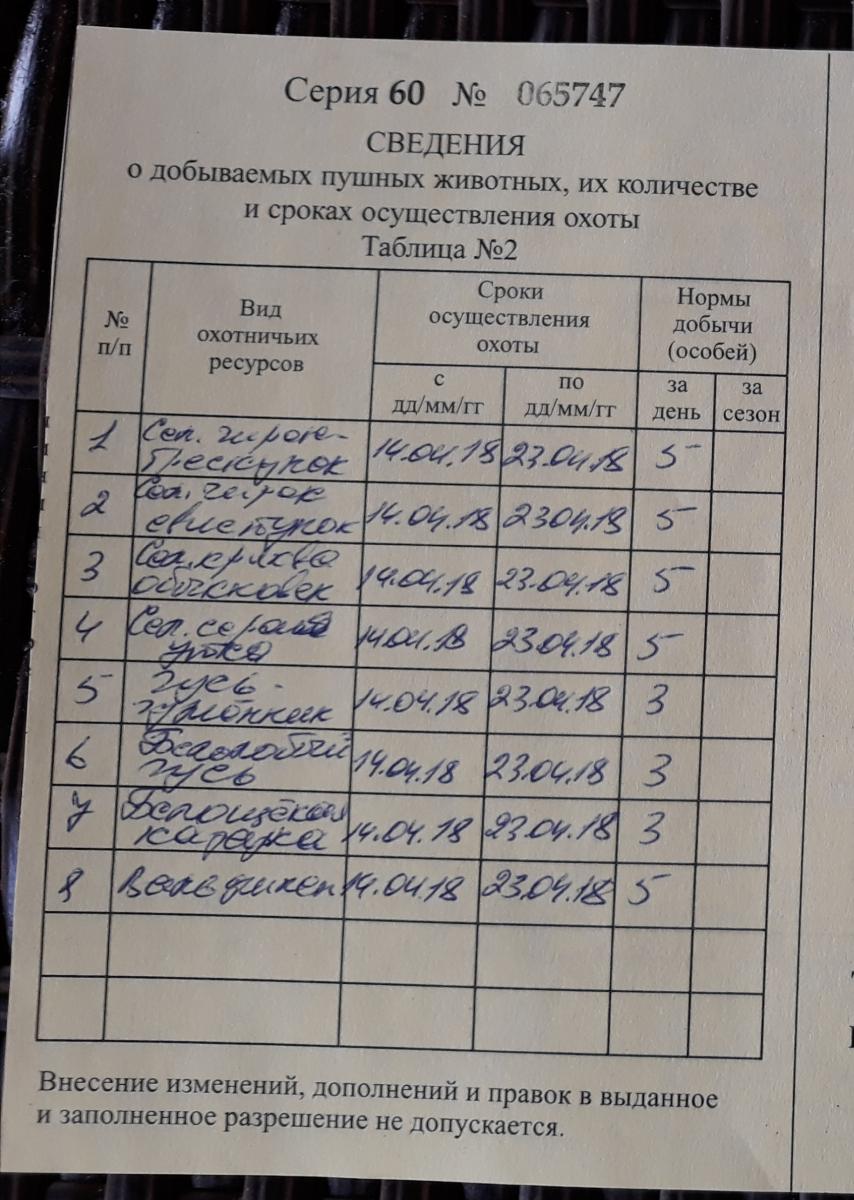 Серия 60 № 065747
СВЕДЕНИЯ
о добываемых пушных животных, их количестве
и сроках осуществления охоты
Таблица №2
№
п/п
Вид
охотничьих
ресурсов
Сроки
осуществления
охоты
Нормы
добычи
(особей)
с
дд/мм/гг
по
дд/мм/гг
за
день
за
сезон
1 Сел. чирок- 14.04.18 23.04.18 5
трескунок
2 Сел. чирок 14.04.18 23.04.18 5
свистунок
3 Сел. кряква 14.04.18 23.04.18 5
4 Сел. серая 14.04.18 23.04.18 5
утка
5 Гусь- 14.04.18 23.04.18 3
гуменник
6 Белолобый 14.04.18 23.04.18 3
гусь
7 Белощёкая 14.04.18 23.04.18 3
казарка
8 Вальдшнеп 14.04.18 23.04.18 5
Внесение изменений, дополнений и правок в выданное
и заполненное разрешение не допускается.